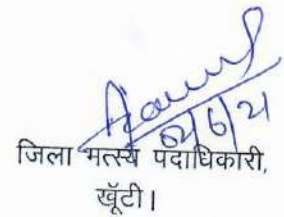 02/6/21
जिला मत्स्य पदाधिकारी,
खूँटी।